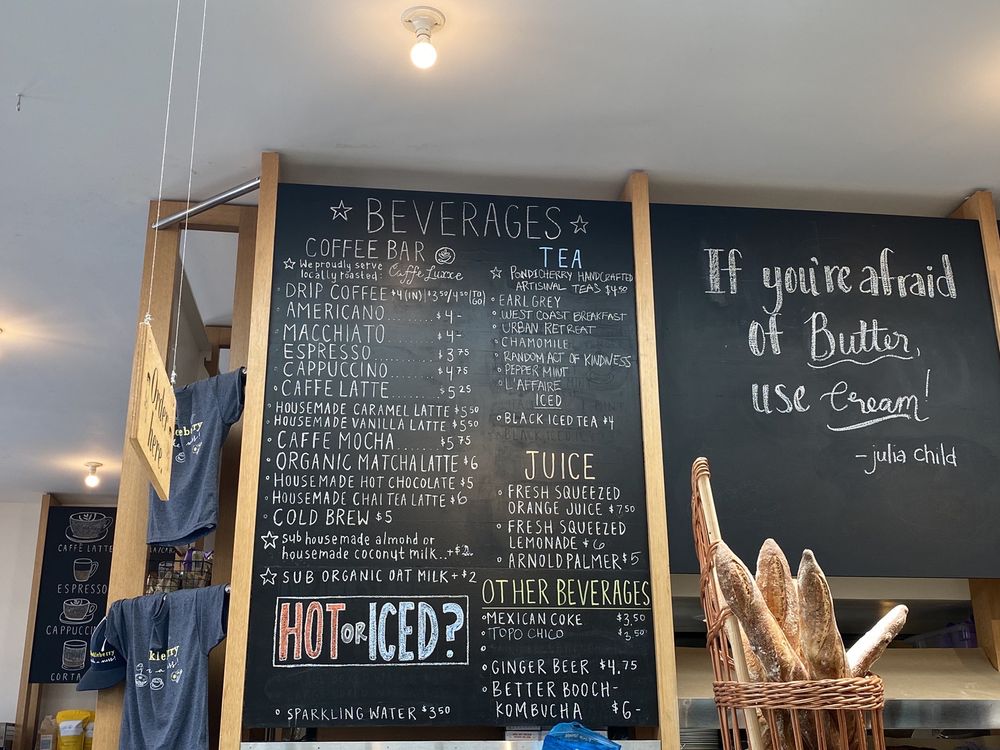 BEVERAGES
COFFEE BAR
We proudly serve
locally roasted: Caffe Luxxe
DRIP COFFEE $4(IN) $3.50/4.50 (TO GO)
AMERICANO........ $4-
MACCHIATO........ $4-
ESPRESSO........ $3.75
CAPPUCCINO........ $4.75
CAFFE LATTE........ $5.25
HOUSEMADE CARAMEL LATTE $5.50
HOUSEMADE VANILLA LATTE $5.50
CAFFE MOCHA........ $5.75
ORGANIC MATCHA LATTE $6
HOUSEMADE HOT CHOCOLATE $5
HOUSEMADE CHAI TEA LATTE $6
COLD BREW $5
sub housemade almond or
housemade coconut milk..+$2
SUB ORGANIC OAT MILK +$2
HOT OR ICED?
SPARKLING WATER $3.50
TEA
PONDICHERRY HANDCRAFTED
ARTISINAL TEAS $4.50
EARL GREY
WEST COAST BREAKFAST
URBAN RETREAT
CHAMOMILE
RANDOM ACT OF KINDNESS
PEPPERMINT
L'AFFAIRE
ICED
BLACK ICED TEA $4
JUICE
FRESH SQUEEZED
ORANGE JUICE $7.50
FRESH SQUEEZED
LEMONADE $6
ARNOLD PALMER $5
OTHER BEVERAGES
MEXICAN COKE $3.50
TOPO CHICO $3.50
GINGER BEER $4.75
BETTER BOOCH-
KOMBUCHA $6-
If you're afraid
of Butter,
use Cream!
-julia child
Order
here.
CAFFÈ LATTE
ESPRESSO
CAPPUCC
CORTA